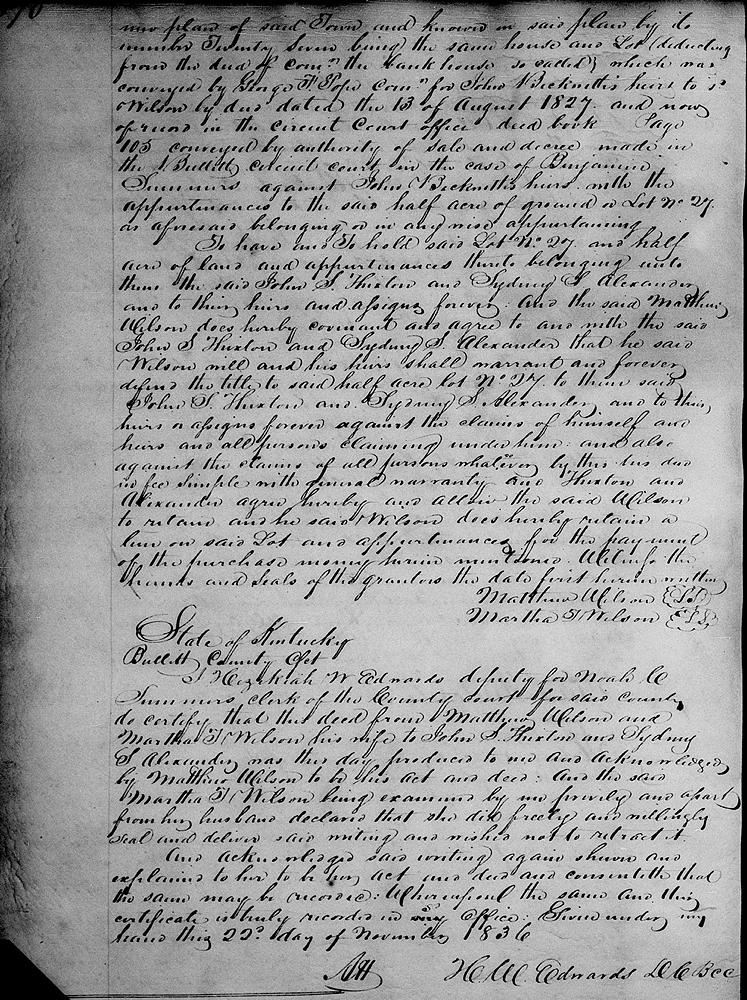 new plan of said Town and known in said plan by its
number Twenty Seven being the same house and Lot (deducting
from the deed of Comr the bank house so called) which was
conveyed by George F Pope Comr for John N Beckwith's heirs to sd
Wilson by deed dated the 13 of August 1827. and now
of record in the circuit Court office deed book Page
105 conveyed by authority of sale and decree made in
the Bullitt circuit court in the case of Benjamin
Summers against John Beckwith's heirs with the
appurtinances to the said half acre of ground or Lot No 27.
as aforesaid belonging or in any wise appurtaining
To have and To hold said Lot No 27. and half
acre of land and appurtinances thereto belonging unto
them the said John S. Huxton and Sydney S Alexander
and to their heirs and assigns forever: And the said Matthew
Wilson does hereby covenant and agree to and with the said
John S Huxton and Sydney S. Alexander that he said
Wilson will and his heirs shall warrant and forever
defend the title to said half acre lot No 27. to them said
John S. Huxton and Sydney S Alexander and to their
heirs or assigns forever against the claims of himself and
heirs and all persons claiming under him: and also
against the claims of all persons whatever by this his deed
in fee simple with general warranty and Huxton and
Alexander agree hereby and allow the said Wilson
to retain and he said Wilson does hereby retain a
lien on said Lot and appurtinances for the payment
of the purchase money herein mentioned. Witness the
hands and seals of the grantors the date first herein written
Matthew Wilson {LS}
Martha T Wilson {LS}
State of Kentucky
Bullitt County Sct
I Hezekiah W Edwards deputy for Noah C
Summers clerk of the County court for said county
do certify that this deed from Matthew Wilson and
Martha T Wilson his wife to John S. Huxton and Sydney
S Alexander was this day produced to me and Acknowledged
by Matthew Wilson to be his act and deed: And the said
Martha T Wilson being examined by me privily and apart
from her husband declared that she did freely and willingly
seal and deliver said writing and wished not to retract it
And acknowledged said writing again shewn and
explained to her to be her act and deed and consenteth that
the same may be recorded: Whereupon the same and this
certificate is truly recorded in my Office: Given under my
hand this 22d day of November 1836
H W. Edwards D C B C C